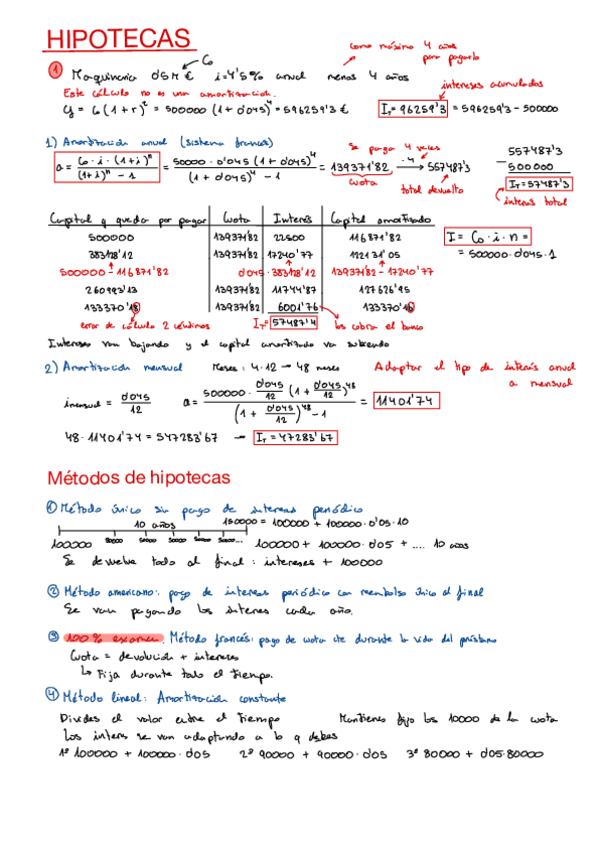 HIPOTECAS
como máximo 4 años
para pagarlo
① Maquinaria 0'5M € C₀ i=4'5% anual menos 4 años
Este cálculo no es una amortización.
intereses acumulados
Cf = C₀(1+r)^t = 500000(1+0'045)^4 = 596259'3 € I_T = 96259'3 = 596259'3 - 500000
1) Amortización anual (sistema francés)
se paga 4 veces
a = C₀·i·(1+i)^n / (1+i)^n - 1 = 500000·0'045(1+0'045)^4 / (1+0'045)^4 - 1 = 139371'82 ·4 → 557487'3
cuota
total devuelto
557487'3
- 500000
I_T = 57487'3
interés total
Capital q queda por pagar | Cuota | Interés | Capital amortizado
500000 | 139371'82 | 22500 | 116871'82
383128'12 | 139371'82 | 17240'77 | 122131'05
500000 - 116871'82 0'045·383128'12 139371'82 - 17240'77
260993'13 | 139371'82 | 11744'87 | 127626'95
133370'18 | 139371'82 | 6001'76 | 133370'16
error de cálculo 2 céntimos I_T = 57487'4 los cobra el banco
I = C₀·i·n =
= 500000·0'045·1
Intereses van bajando y el capital amortizado va subiendo
2) Amortización mensual Meses: 4·12 → 48 meses Adaptar el tipo de interés anual
a mensual
i mensual = 0'045 / 12 a = 500000 · 0'045/12 (1 + 0'045/12)^48 / (1 + 0'045/12)^48 - 1 = 11401'74
48·11401'74 = 547283'67 → I_T = 47283'67
Métodos de hipotecas
① Método único sin pago de intereses periódico
10 años 150000 = 100000 + 100000·0'05·10
100000 100000 + 100000·0'05 + .... 10 años
Se devuelve todo al final: intereses + 100000
② Método americano: pago de intereses periódico con reembolso único al final
Se van pagando los intereses cada año.
③ 100% examen. Método francés: pago de cuota cte durante la vida del préstamo
Cuota = devolución + intereses
↳ Fija durante todo el tiempo.
④ Método lineal: Amortización constante
Divides el valor entre el tiempo Mantienes fijo los 10000 de la cuota
Los interes se van adaptando a lo q debes
1º 100000 + 100000·0'05 2º 90000 + 90000·0'05 3º 80000 + 0'05·80000